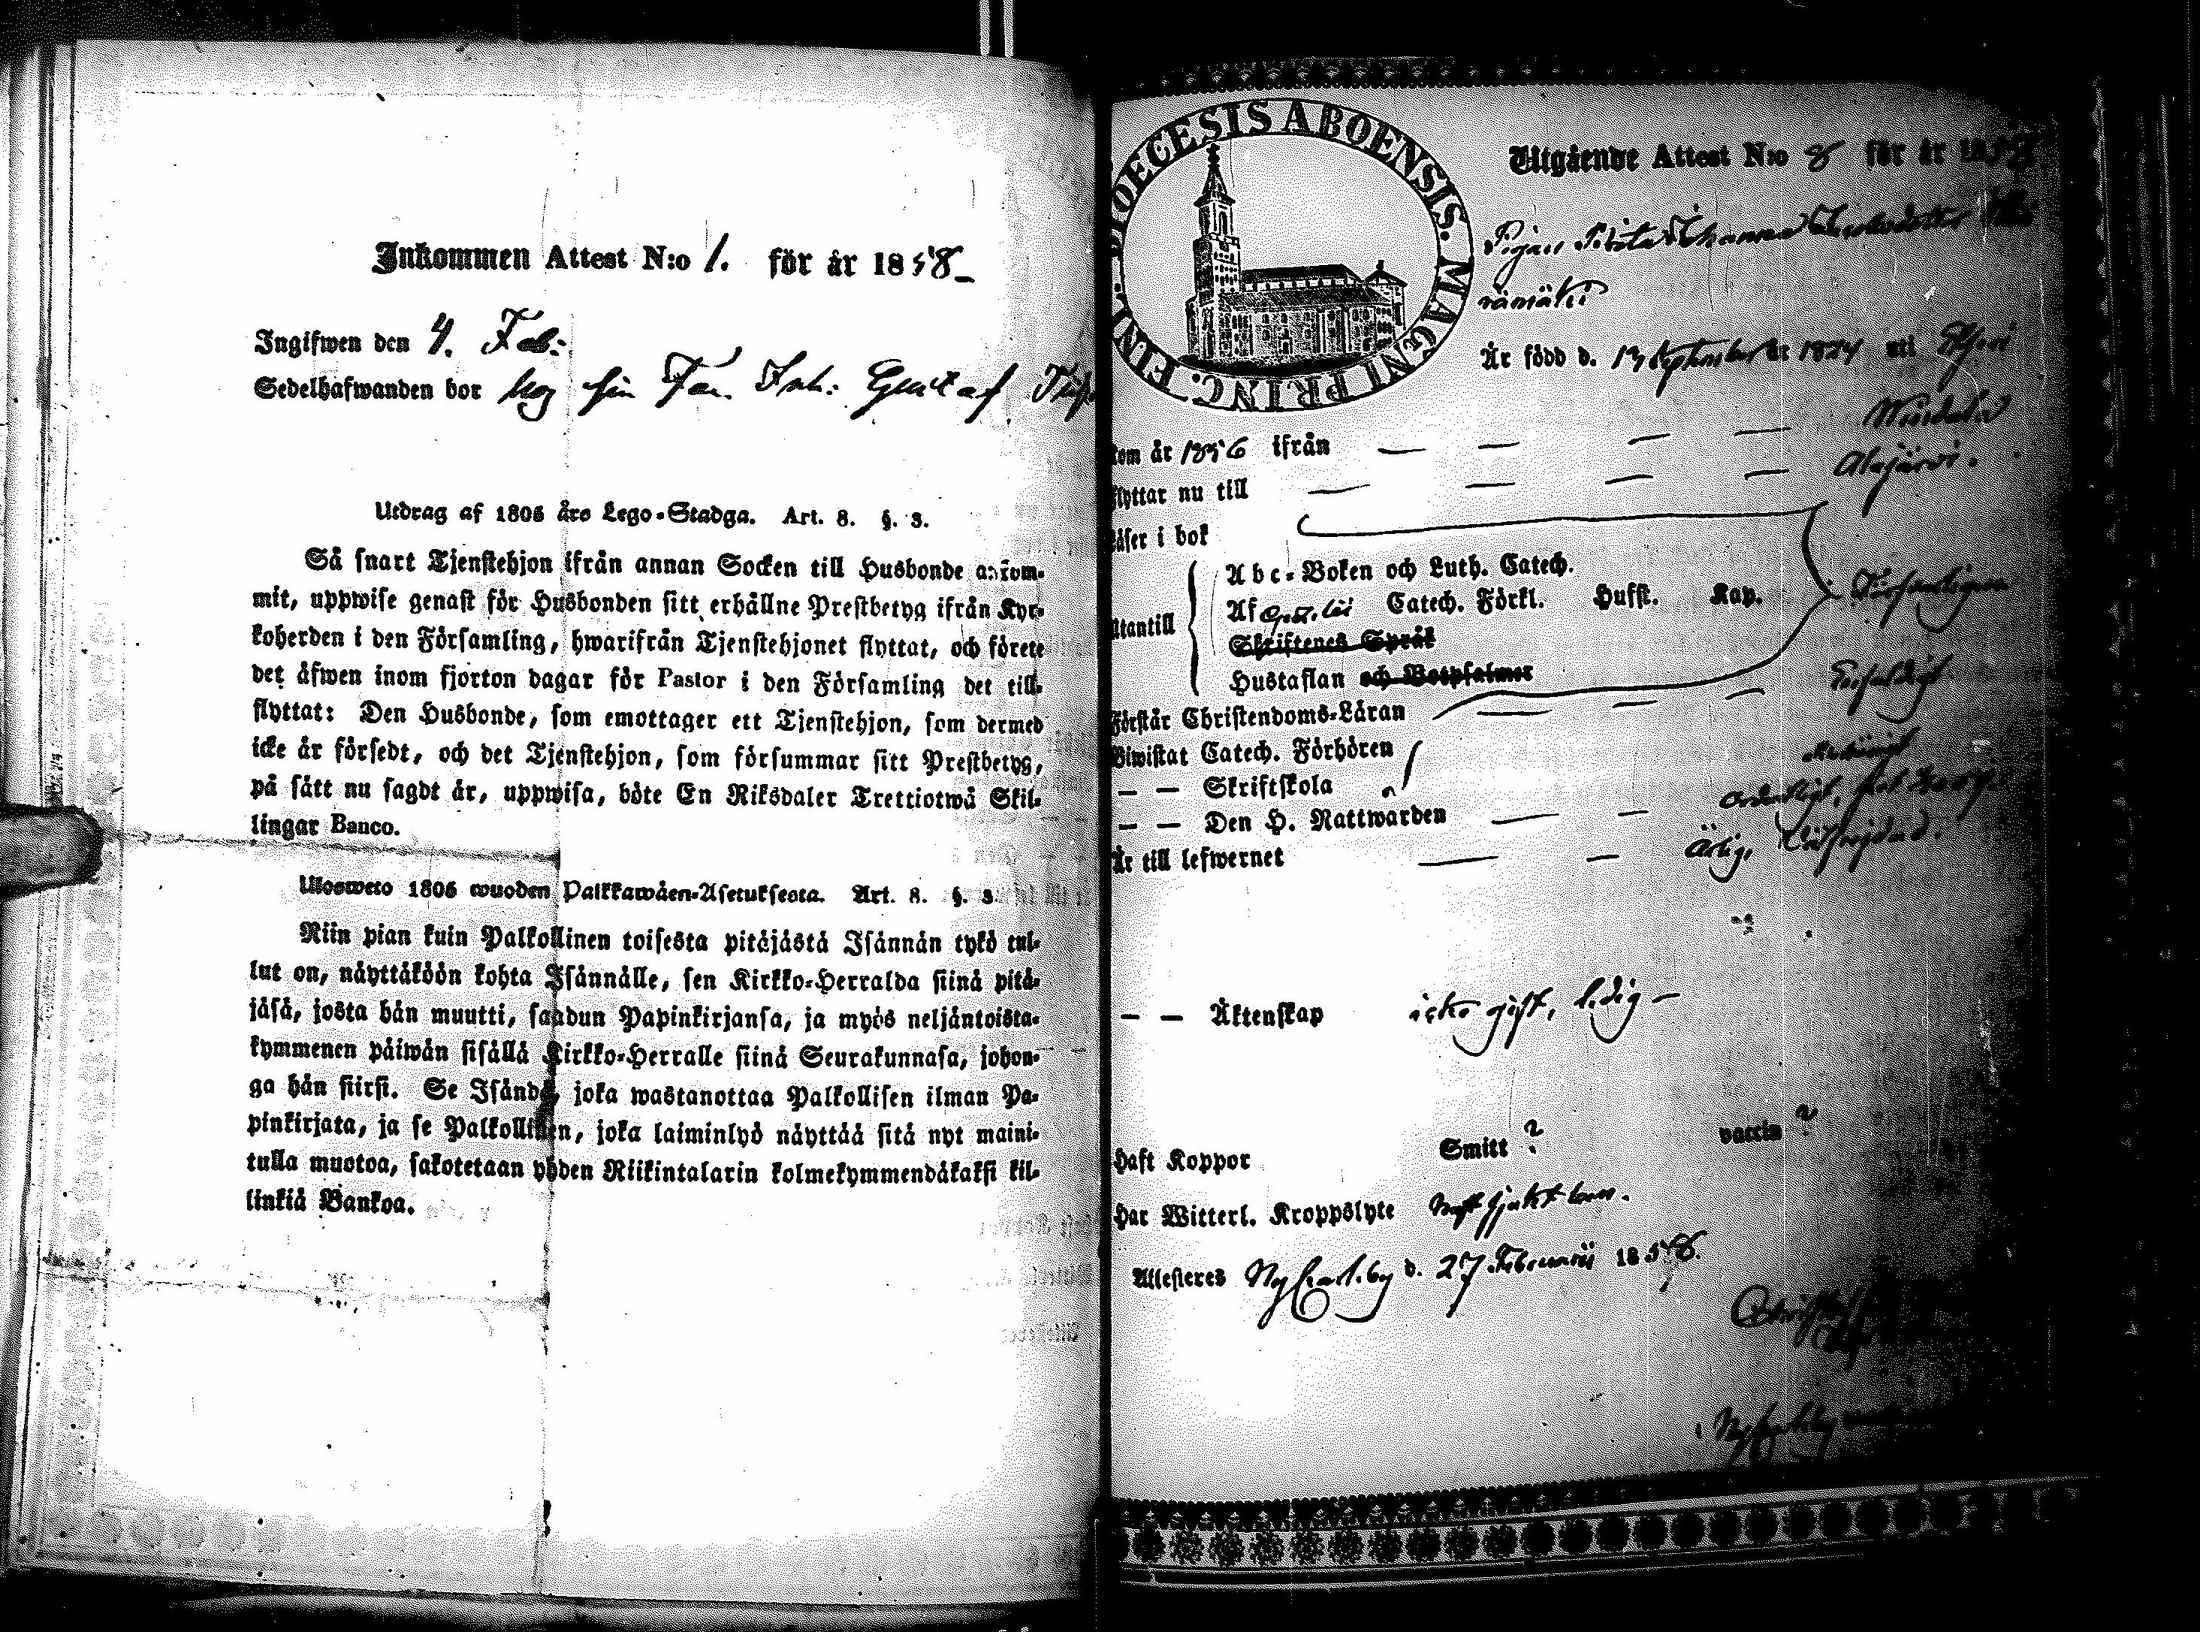 Inkommen Attest N:o 1. för år 1858
Ingifwen den 4. Feb:
Sedelhafwanden bor hos sin Far. Joh: Gustaf
Utdrag af 1805 års Lego-Stadga. Art. 8. §. 3.
Så snart Tjenstehjon ifrån annan Socken till Husbonde ankom-
mit, uppwise genast för Husbonden sitt erhållne Prestbetyg ifrån Kyr-
koherden i den Församling, hwarifrån Tjenstehjonet flyttat, och förete
det äfwen inom fjorton dagar för Pastor i den Församling det till-
flyttat: Den Husbonde, som emottager ett Tjenstehjon, som dermed
icke är försedt, och det Tjenstehjon, som försummar sitt Prestbetyg,
på sätt nu sagdt är, uppwisa, böte En Riksdaler Trettiotwå Skil-
lingar Banco.
Ulosweto 1805 wuoden Palkkawäen-Asetuksesta. Art. 8. §. 3.
Niin pian kuin Palkollinen toisesta pitäjästä Isännän tykö tul-
lut on, näyttäköön kohta Isännälle, sen Kirkko-Herralda siinä pitä-
jäsä, josta hän muutti, saadun Papinkirjansa, ja myös neljäntoista-
kymmenen päiwän sisällä Kirkko-Herralle siinä Seurakunnasa, johon-
ga hän siirsi. Se Isändä, joka wastanottaa Palkollisen ilman Pa-
pinkirjata, ja se Palkollinen, joka laiminlyö näyttää sitä nyt maini-
tulla muotoa, sakotetaan yhden Riikintalarin kolmekymmendäkaksi kil-
linkiä Bankoa.
DIOECESIS ABOENSIS. MAGNI PRINC. FINL.
Utgående Attest N:o 8 för år 1858
Pigan Johanna
Är född d. 13 September år 1824 uti
kom år 1856 ifrån
flyttar nu till Alajärvi.
Läser i bok
Utantill
Abc-Boken och Luth. Catech.
Af Catech. Förkl. Hufst. Kap.
Skriftenes Språk
Hustaflan och Botpsalmer
Förstår Christendoms-Läran
Biwistat Catech. Förhören
— — Skriftskola
— — Den H. Nattwarden
Är till lefwernet Ärlig,
— — Äktenskap icke gift, ledig —
Haft Koppor Smitt ? vaccin ?
Har Witterl. Kroppslyte
Attesteres Nykarleby d. 27 Februarii 1858.